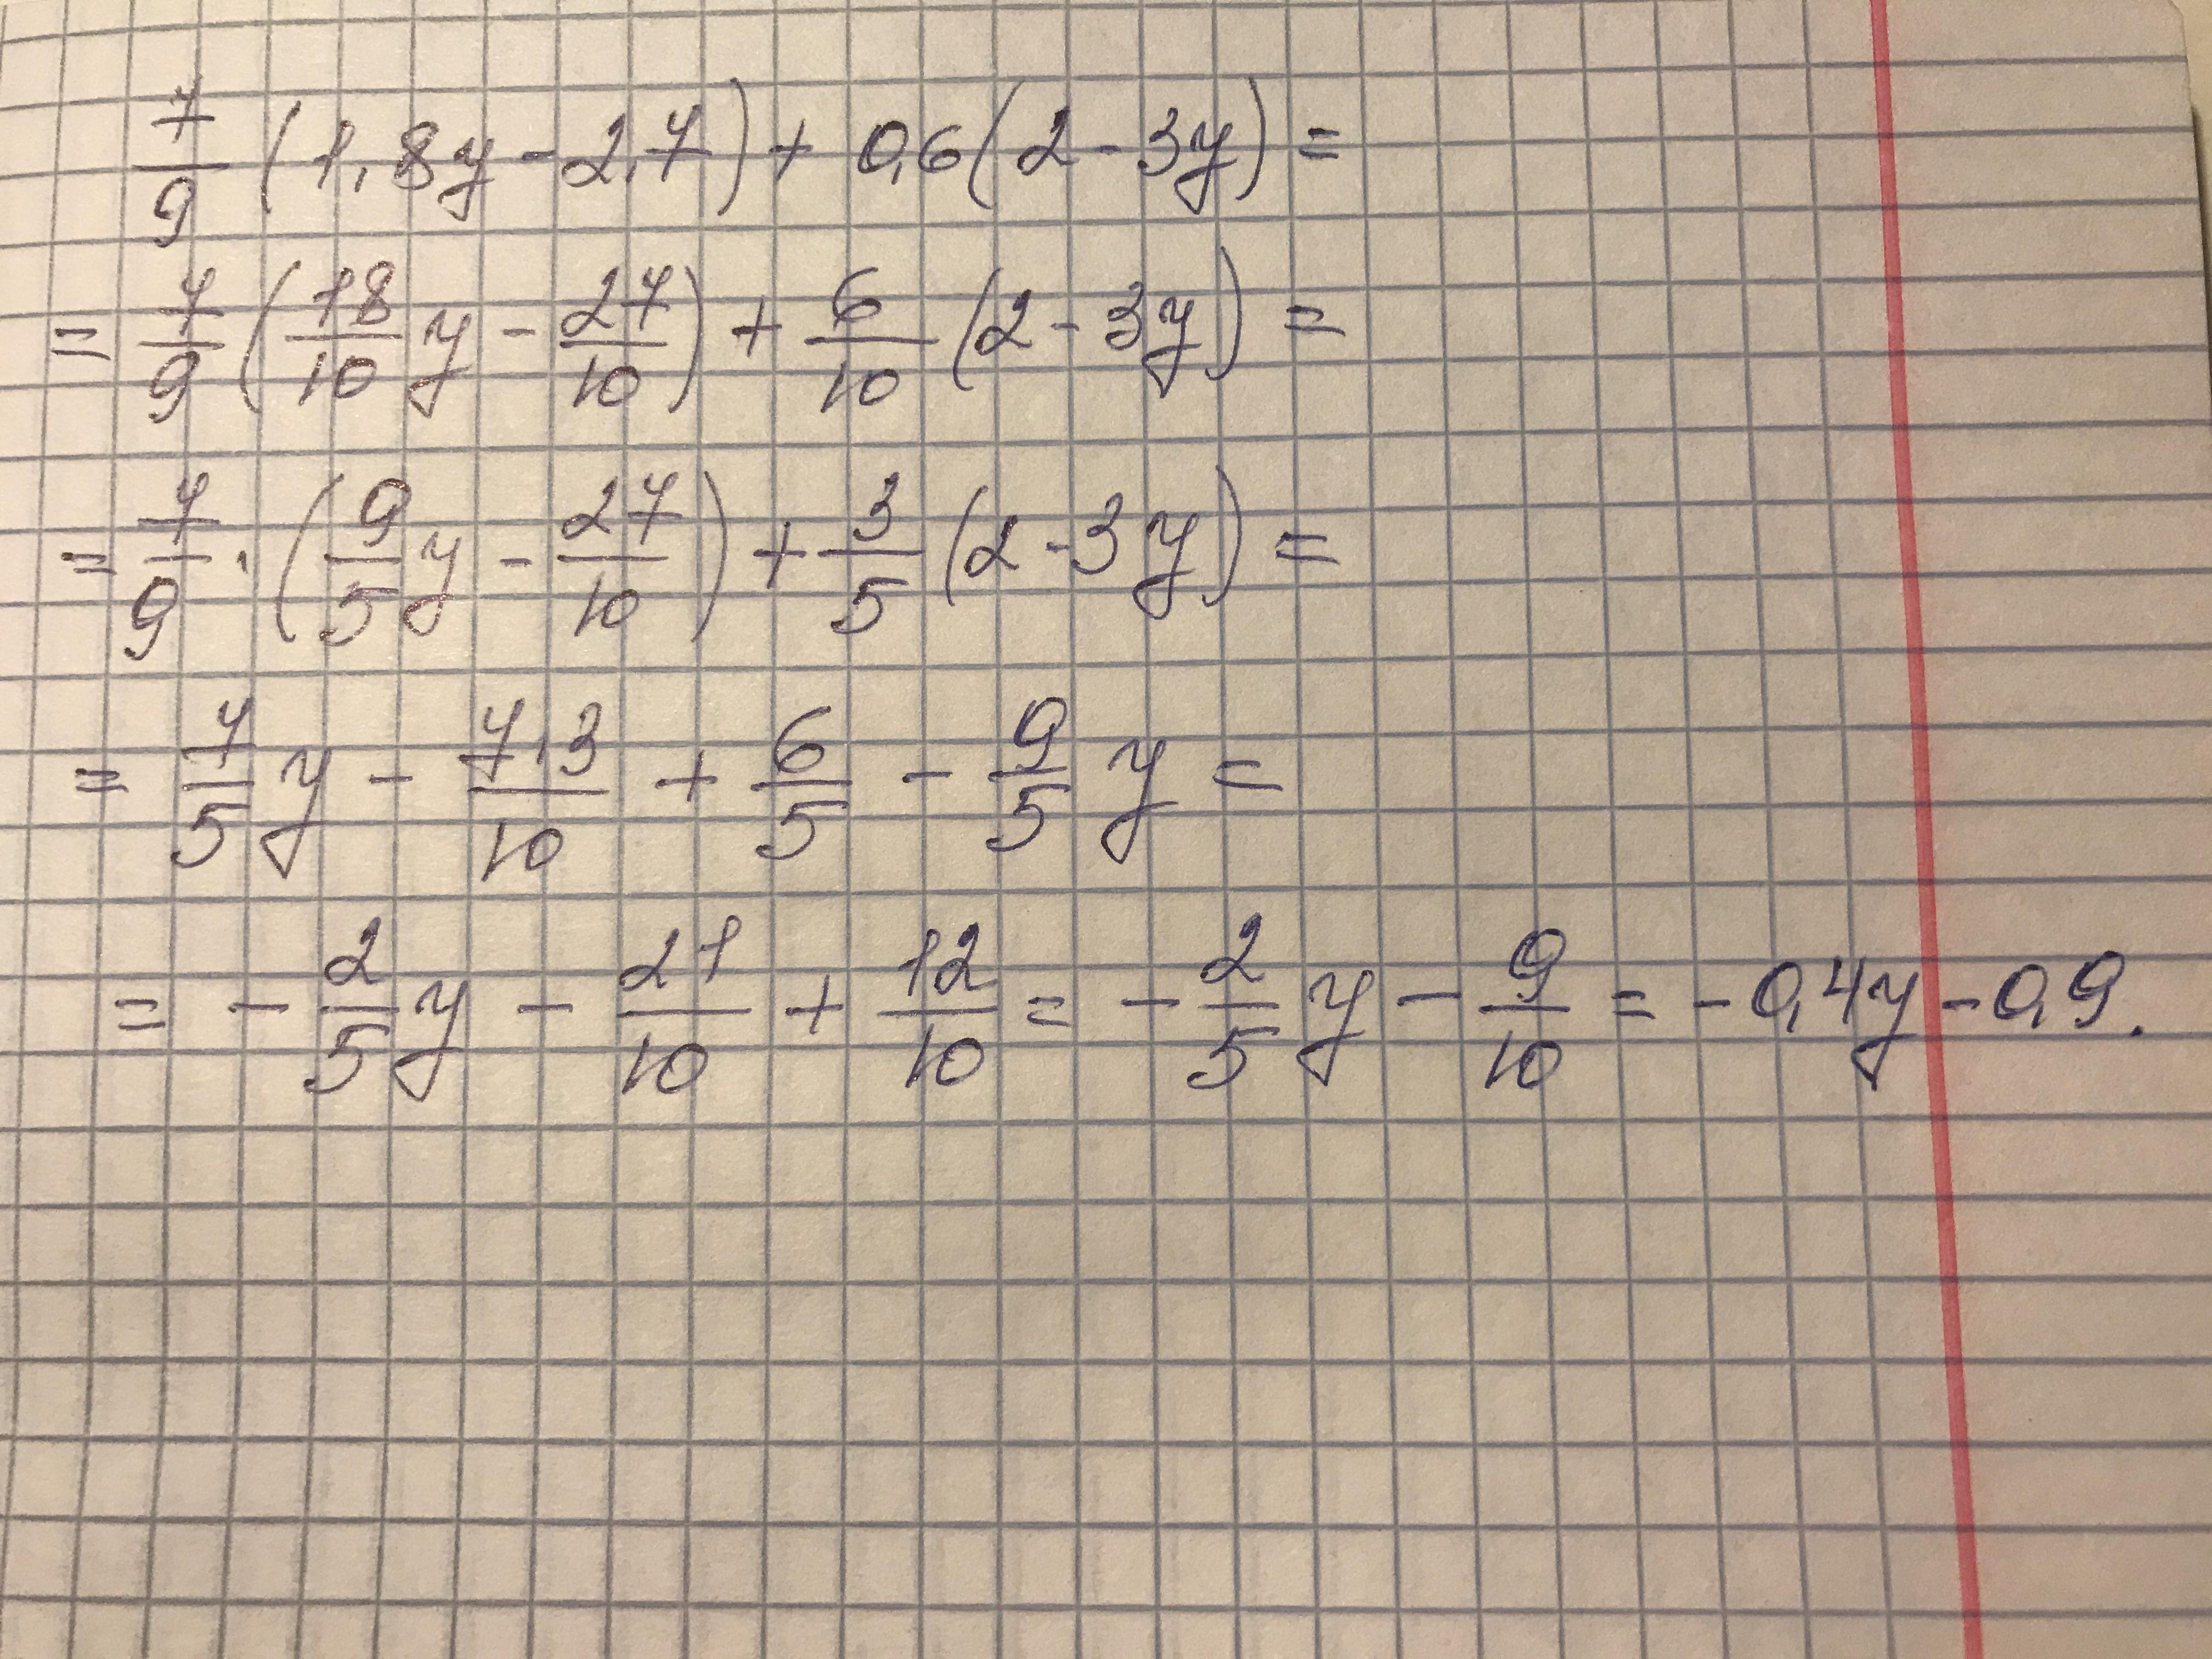 7/9 (1,8y - 2,7) + 0,6(2 - 3y) =
= 7/9 (18/10 y - 27/10) + 6/10 (2 - 3y) =
= 7/9 · (9/5 y - 27/10) + 3/5 (2 - 3y) =
= 7/5 y - 7·3/10 + 6/5 - 9/5 y =
= - 2/5 y - 21/10 + 12/10 = - 2/5 y - 9/10 = - 0,4y - 0,9.